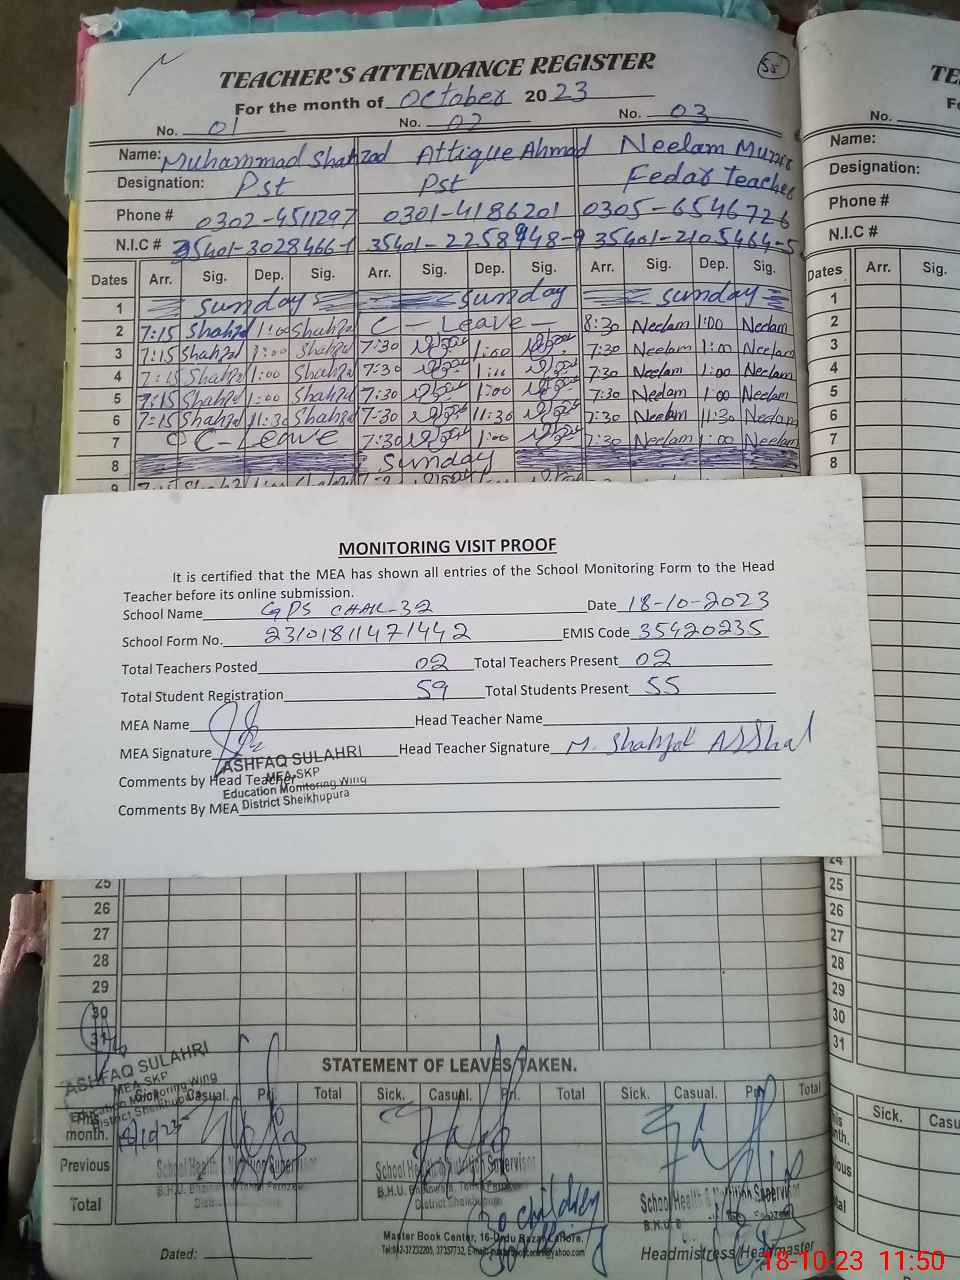 TEACHER'S ATTENDANCE REGISTER
55
For the month of October 2023
No. 01 No. 02 No. 03
Name: Muhammad Shahzad Attique Ahmad Neelam Munir
Designation: Pst Pst Fedar Teacher
Phone # 0302-4511297 0301-4186201 0305-6546726
N.I.C # 35401-3028466-1 35401-2258948-9 35401-2105464-5
Dates Arr. Sig. Dep. Sig. Arr. Sig. Dep. Sig. Arr. Sig. Dep. Sig.
1 Sunday Sunday Sunday
2 7:15 Shahzd 1:00 Shahzd C - Leave - 8:30 Neelam 1:00 Neelam
3 7:15 Shahzd 1:00 Shahzd 7:30 1:00 7:30 Neelam 1:00 Neelam
4 7:15 Shahzd 1:00 Shahzd 7:30 1:00 7:30 Neelam 1:00 Neelam
5 7:15 Shahzd 1:00 Shahzd 7:30 1:00 7:30 Neelam 1:00 Neelam
6 7:15 Shahzd 11:30 Shahzd 7:30 11:30 7:30 Neelam 11:30 Neelam
7 C-Leave 7:30 1:00 7:30 Neelam 1:00 Neelam
8 Sunday
9
MONITORING VISIT PROOF
It is certified that the MEA has shown all entries of the School Monitoring Form to the Head
Teacher before its online submission.
School Name GPS CHAK-32 Date 18-10-2023
School Form No. 23101811471442 EMIS Code 35420235
Total Teachers Posted 02 Total Teachers Present 02
Total Student Registration 59 Total Students Present 55
MEA Name Head Teacher Name
MEA Signature Head Teacher Signature M. Shahzad Asshal
ASHFAQ SULAHRI
Comments by Head Teacher
MEA-SKP
Education Monitoring Wing
Comments By MEA
District Sheikhupura
24
25
26
27
28
29
30
31
ASHFAQ SULAHRI
MEA-SKP
Education Monitoring Wing
District Sheikhupura
18/10/23
STATEMENT OF LEAVES TAKEN.
Sick. Casual. Pri. Total Sick. Casual. Pri. Total Sick. Casual. Pri. Total
This month.
Previous
Total
School Health & Nutrition Supervisor
School Health & Nutrition Supervisor
School Health & Nutrition Supervisor
B.H.U.
District Sheikhupura
30 children
Master Book Center, 16-Urdu Bazar Lahore.
Dated:
Headmistress/Headmaster
TE
No.
Name:
Designation:
Phone #
N.I.C #
Dates Arr. Sig.
1
2
3
4
5
6
7
8
24
25
26
27
28
29
30
31
Sick. Casu
18-10-23 11:50